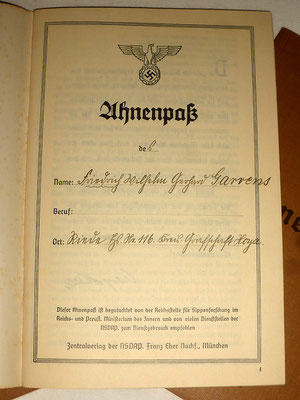 Ahnenpaß
des
Name: Friedrich Wilhelm Gerhard Garrens
Beruf:
Ort: Riede Hs. Nr. 116. Kreis Grafschaft Hoya.
Dieser Ahnenpaß ist begutachtet von der Reichsstelle für Sippenforschung im
Reichs- und Preuß. Ministerium des Innern und von vielen Dienststellen der
NSDAP. zum Dienstgebrauch empfohlen
Zentralverlag der NSDAP. Franz Eher Nachf., München
1